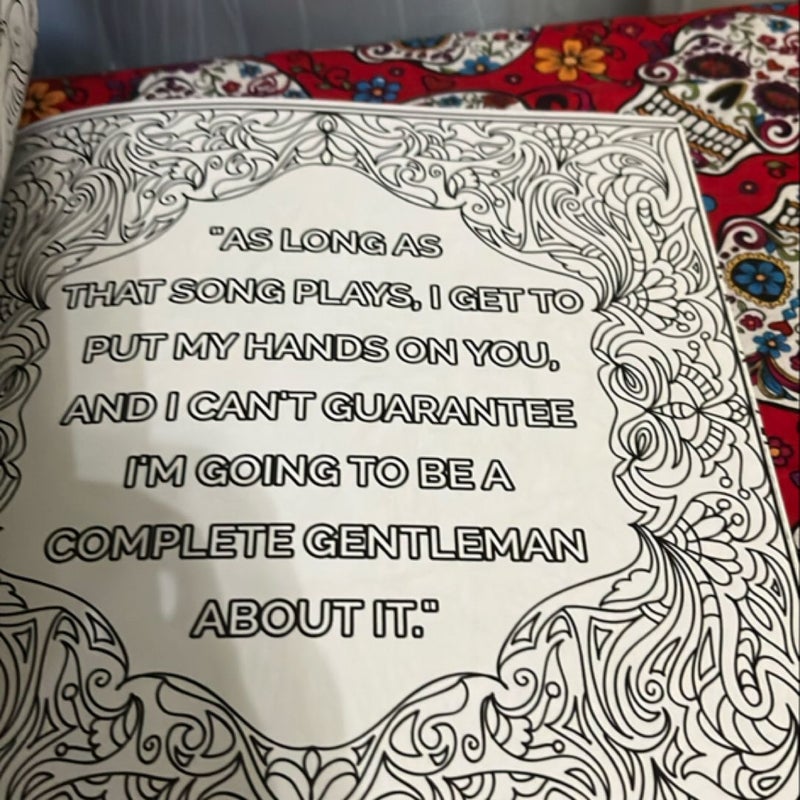 "AS LONG AS
THAT SONG PLAYS, I GET TO
PUT MY HANDS ON YOU,
AND I CAN'T GUARANTEE
I'M GOING TO BE A
COMPLETE GENTLEMAN
ABOUT IT."